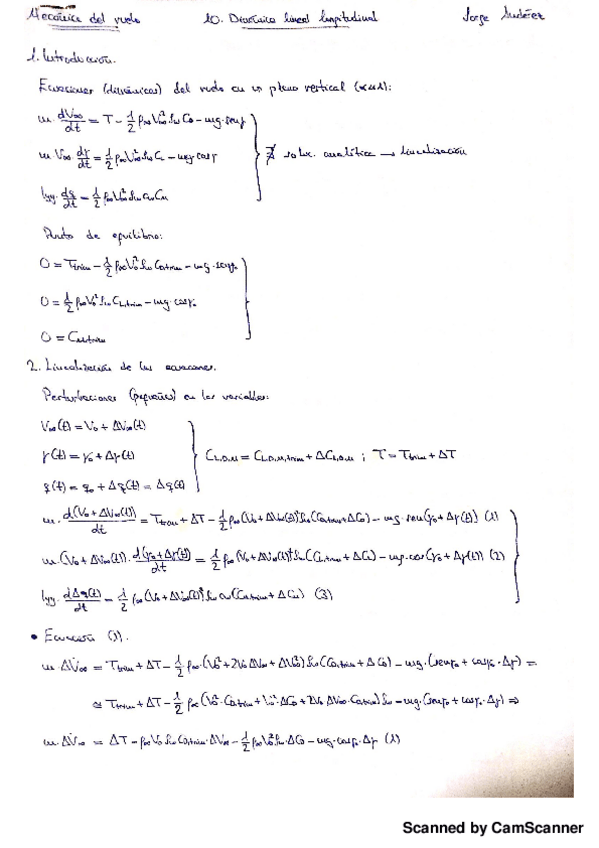 Mecánica del vuelo 10. Dinámica lineal longitudinal Jorge
1. Introducción.
Ecuaciones (dinámicas) del vuelo en un plano vertical:
m·dV∞/dt = T - 1/2 ρ∞V∞²Sw C_D - mg·senγ
m·V∞ dγ/dt = 1/2 ρ∞V∞²Sw C_L - mg cosγ } ∄ soluc. analítica → linealización
Iyy·dq/dt = 1/2 ρ∞V∞²Sw cw C_M
Punto de equilibrio:
0 = Ttrim - 1/2 ρ∞V₀²Sw C_D,trim - mg·senγ₀
0 = 1/2 ρ∞V₀²Sw C_L,trim - mg·cosγ₀
0 = C_M,trim
2. Linealización de las ecuaciones.
Perturbaciones (pequeñas) en las variables:
V∞(t) = V₀ + ΔV∞(t)
γ(t) = γ₀ + Δγ(t) } C_L,D,M = C_L,D,M,trim + ΔC_L,D,M ; T = Ttrim + ΔT
q(t) = q₀ + Δq(t) = Δq(t)
m·d(V₀ + ΔV∞(t))/dt = Ttrim + ΔT - 1/2 ρ∞(V₀ + ΔV∞(t))²Sw(C_D,trim + ΔC_D) - mg·sen(γ₀ + Δγ(t)) (1)
m·(V₀ + ΔV∞(t))·d(γ₀ + Δγ(t))/dt = 1/2 ρ∞(V₀ + ΔV∞(t))²Sw(C_L,trim + ΔC_L) - mg·cos(γ₀ + Δγ(t)) (2)
Iyy·dΔq(t)/dt = 1/2 ρ∞(V₀ + ΔV∞(t))²Sw cw(C_M,trim + ΔC_M) (3)
• Ecuación (1).
m·ΔV̇∞ = Ttrim + ΔT - 1/2 ρ∞·(V₀² + 2V₀ΔV∞ + ΔV∞²)Sw(C_D,trim + ΔC_D) - mg·(senγ₀ + cosγ₀·Δγ) =
≃ Ttrim + ΔT - 1/2 ρ∞(V₀²·C_D,trim + V₀²·ΔC_D + 2V₀ΔV∞·C_D,trim)Sw - mg·(senγ₀ + cosγ₀·Δγ) ⇒
m·ΔV̇∞ = ΔT - ρ∞V₀Sw C_D,trim·ΔV∞ - 1/2 ρ∞V₀²Sw·ΔC_D - mg·cosγ₀·Δγ (1)
Scanned by CamScanner